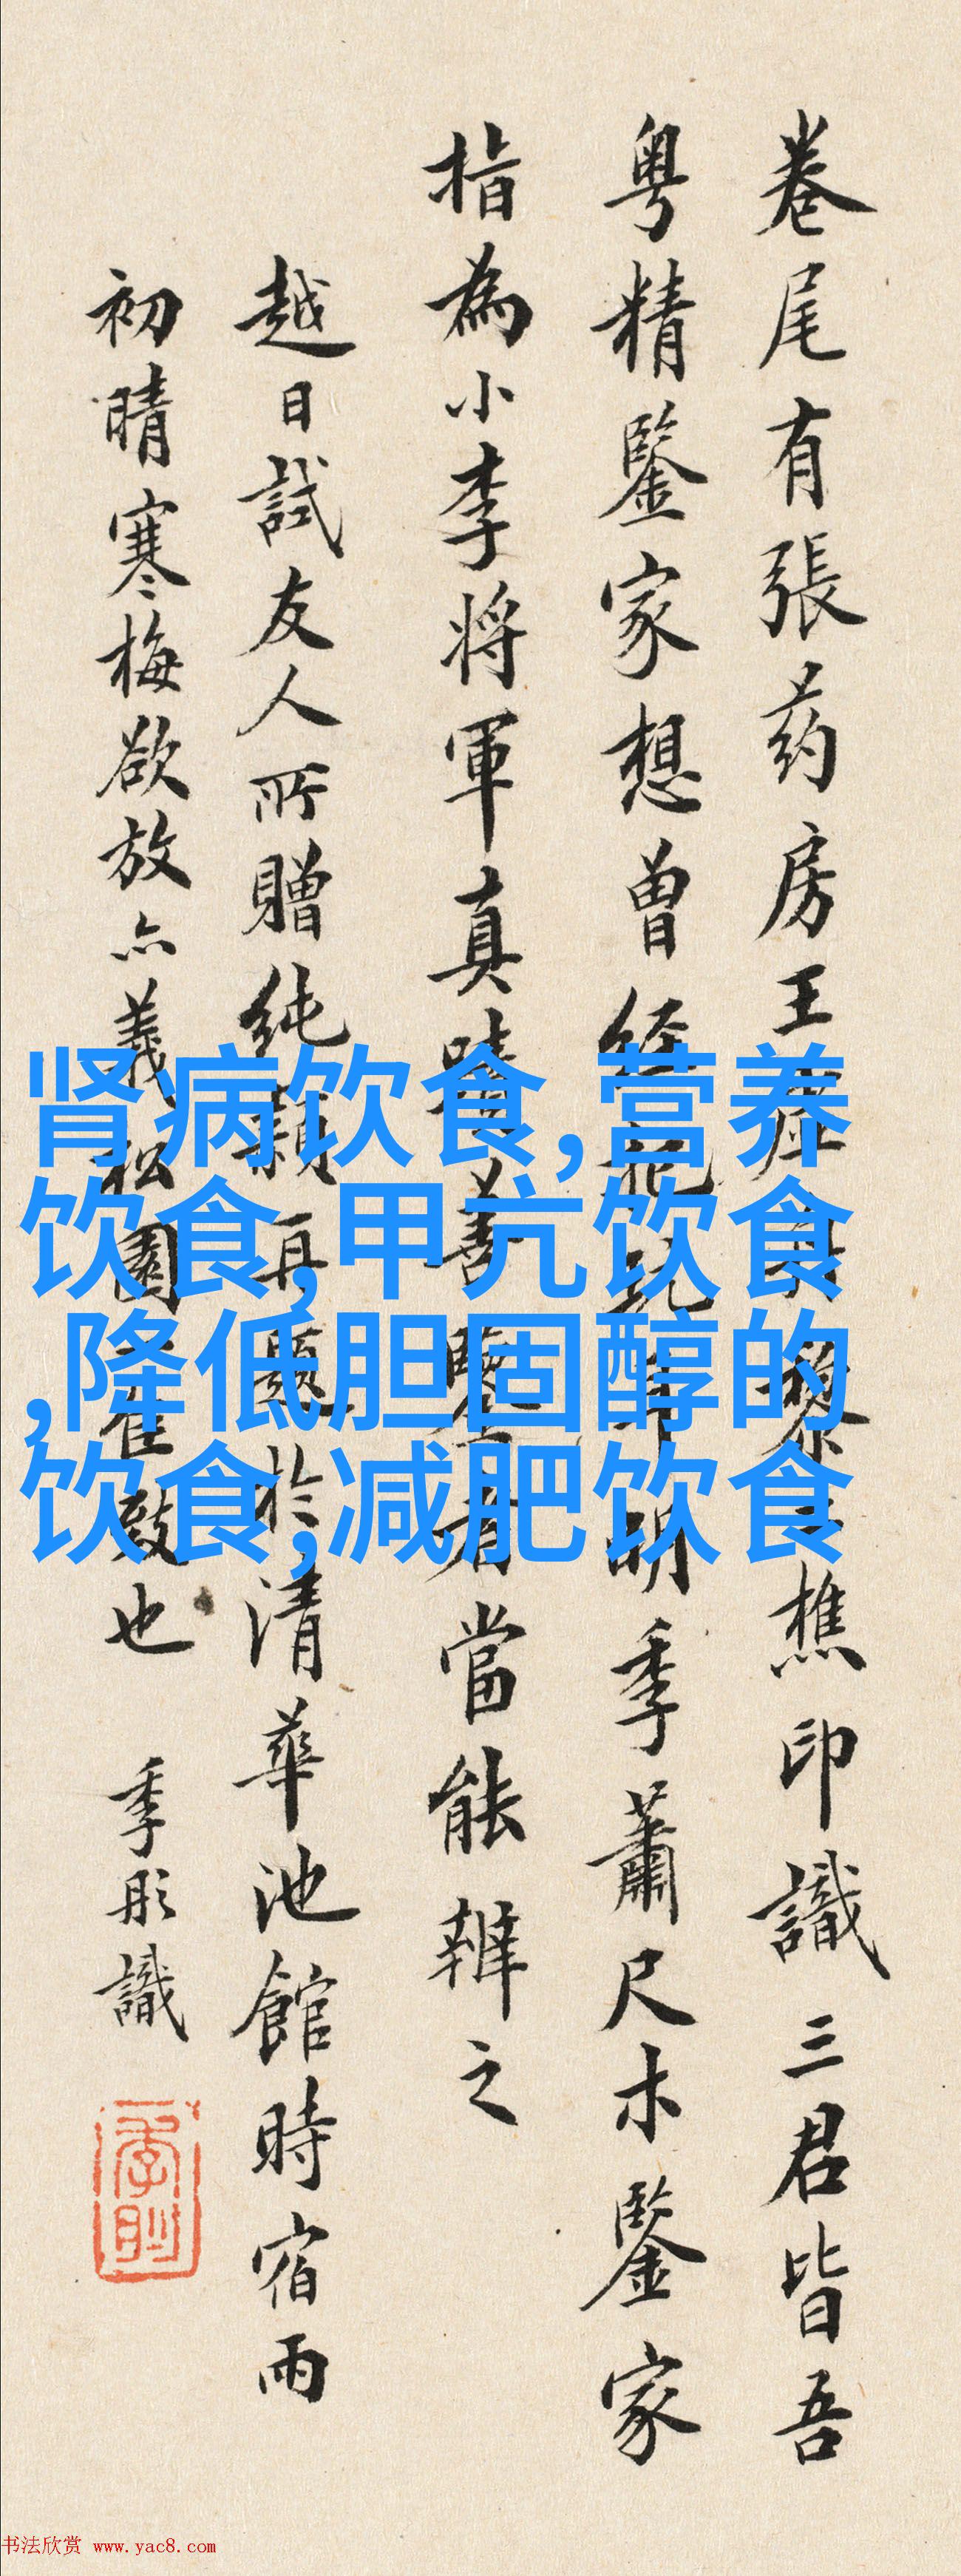 卷尾有張药房王黎樵印識三君皆吾
粤精鑒家想曾經明季蕭尺木鑒家
指為小李將軍真蹟善鑒者當能辨之
越日試友人所贈純穎再題於清華池館時宿雨
初晴寒梅欲放亦義松園佳致也 季彤識
肾病饮食,营养
饮食,甲亢饮食
,降低胆固醇的
饮食,减肥饮食
书法欣赏 www.yac8.com